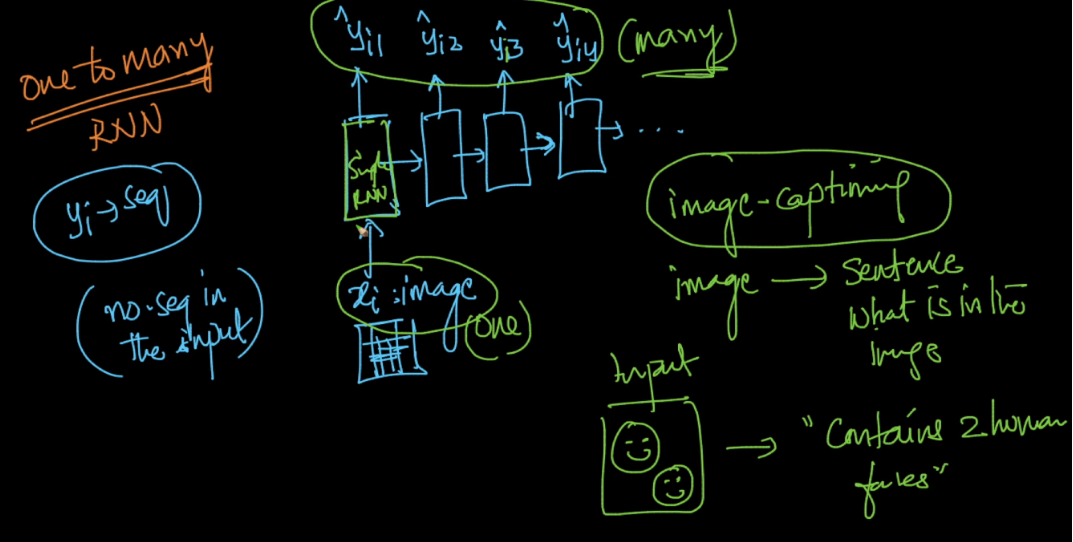 one to many
RNN
yi → seq
(no seq in
the input)
ŷi1 ŷi2 ŷi3 ŷi4 (many)
RNN
....
xi : image
(one)
image-captining
image → Sentence
What is in the
Image
Input
→ "Contains 2 human
faces"